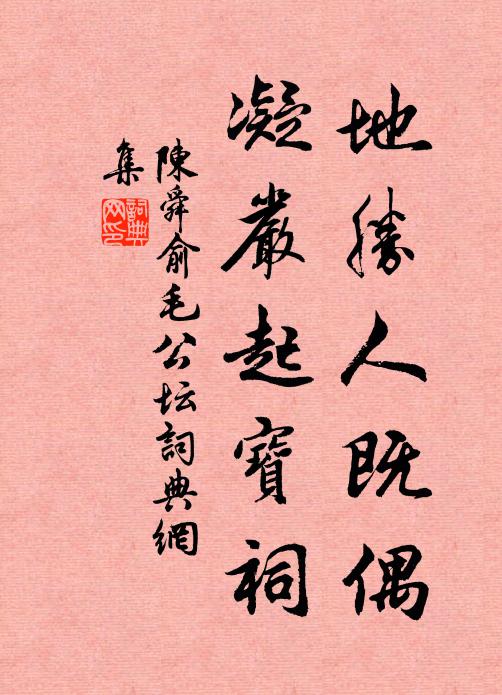 地勝人既偶
凝嚴起寶祠
陳舜俞毛公坛詞典網
集
詞典网印